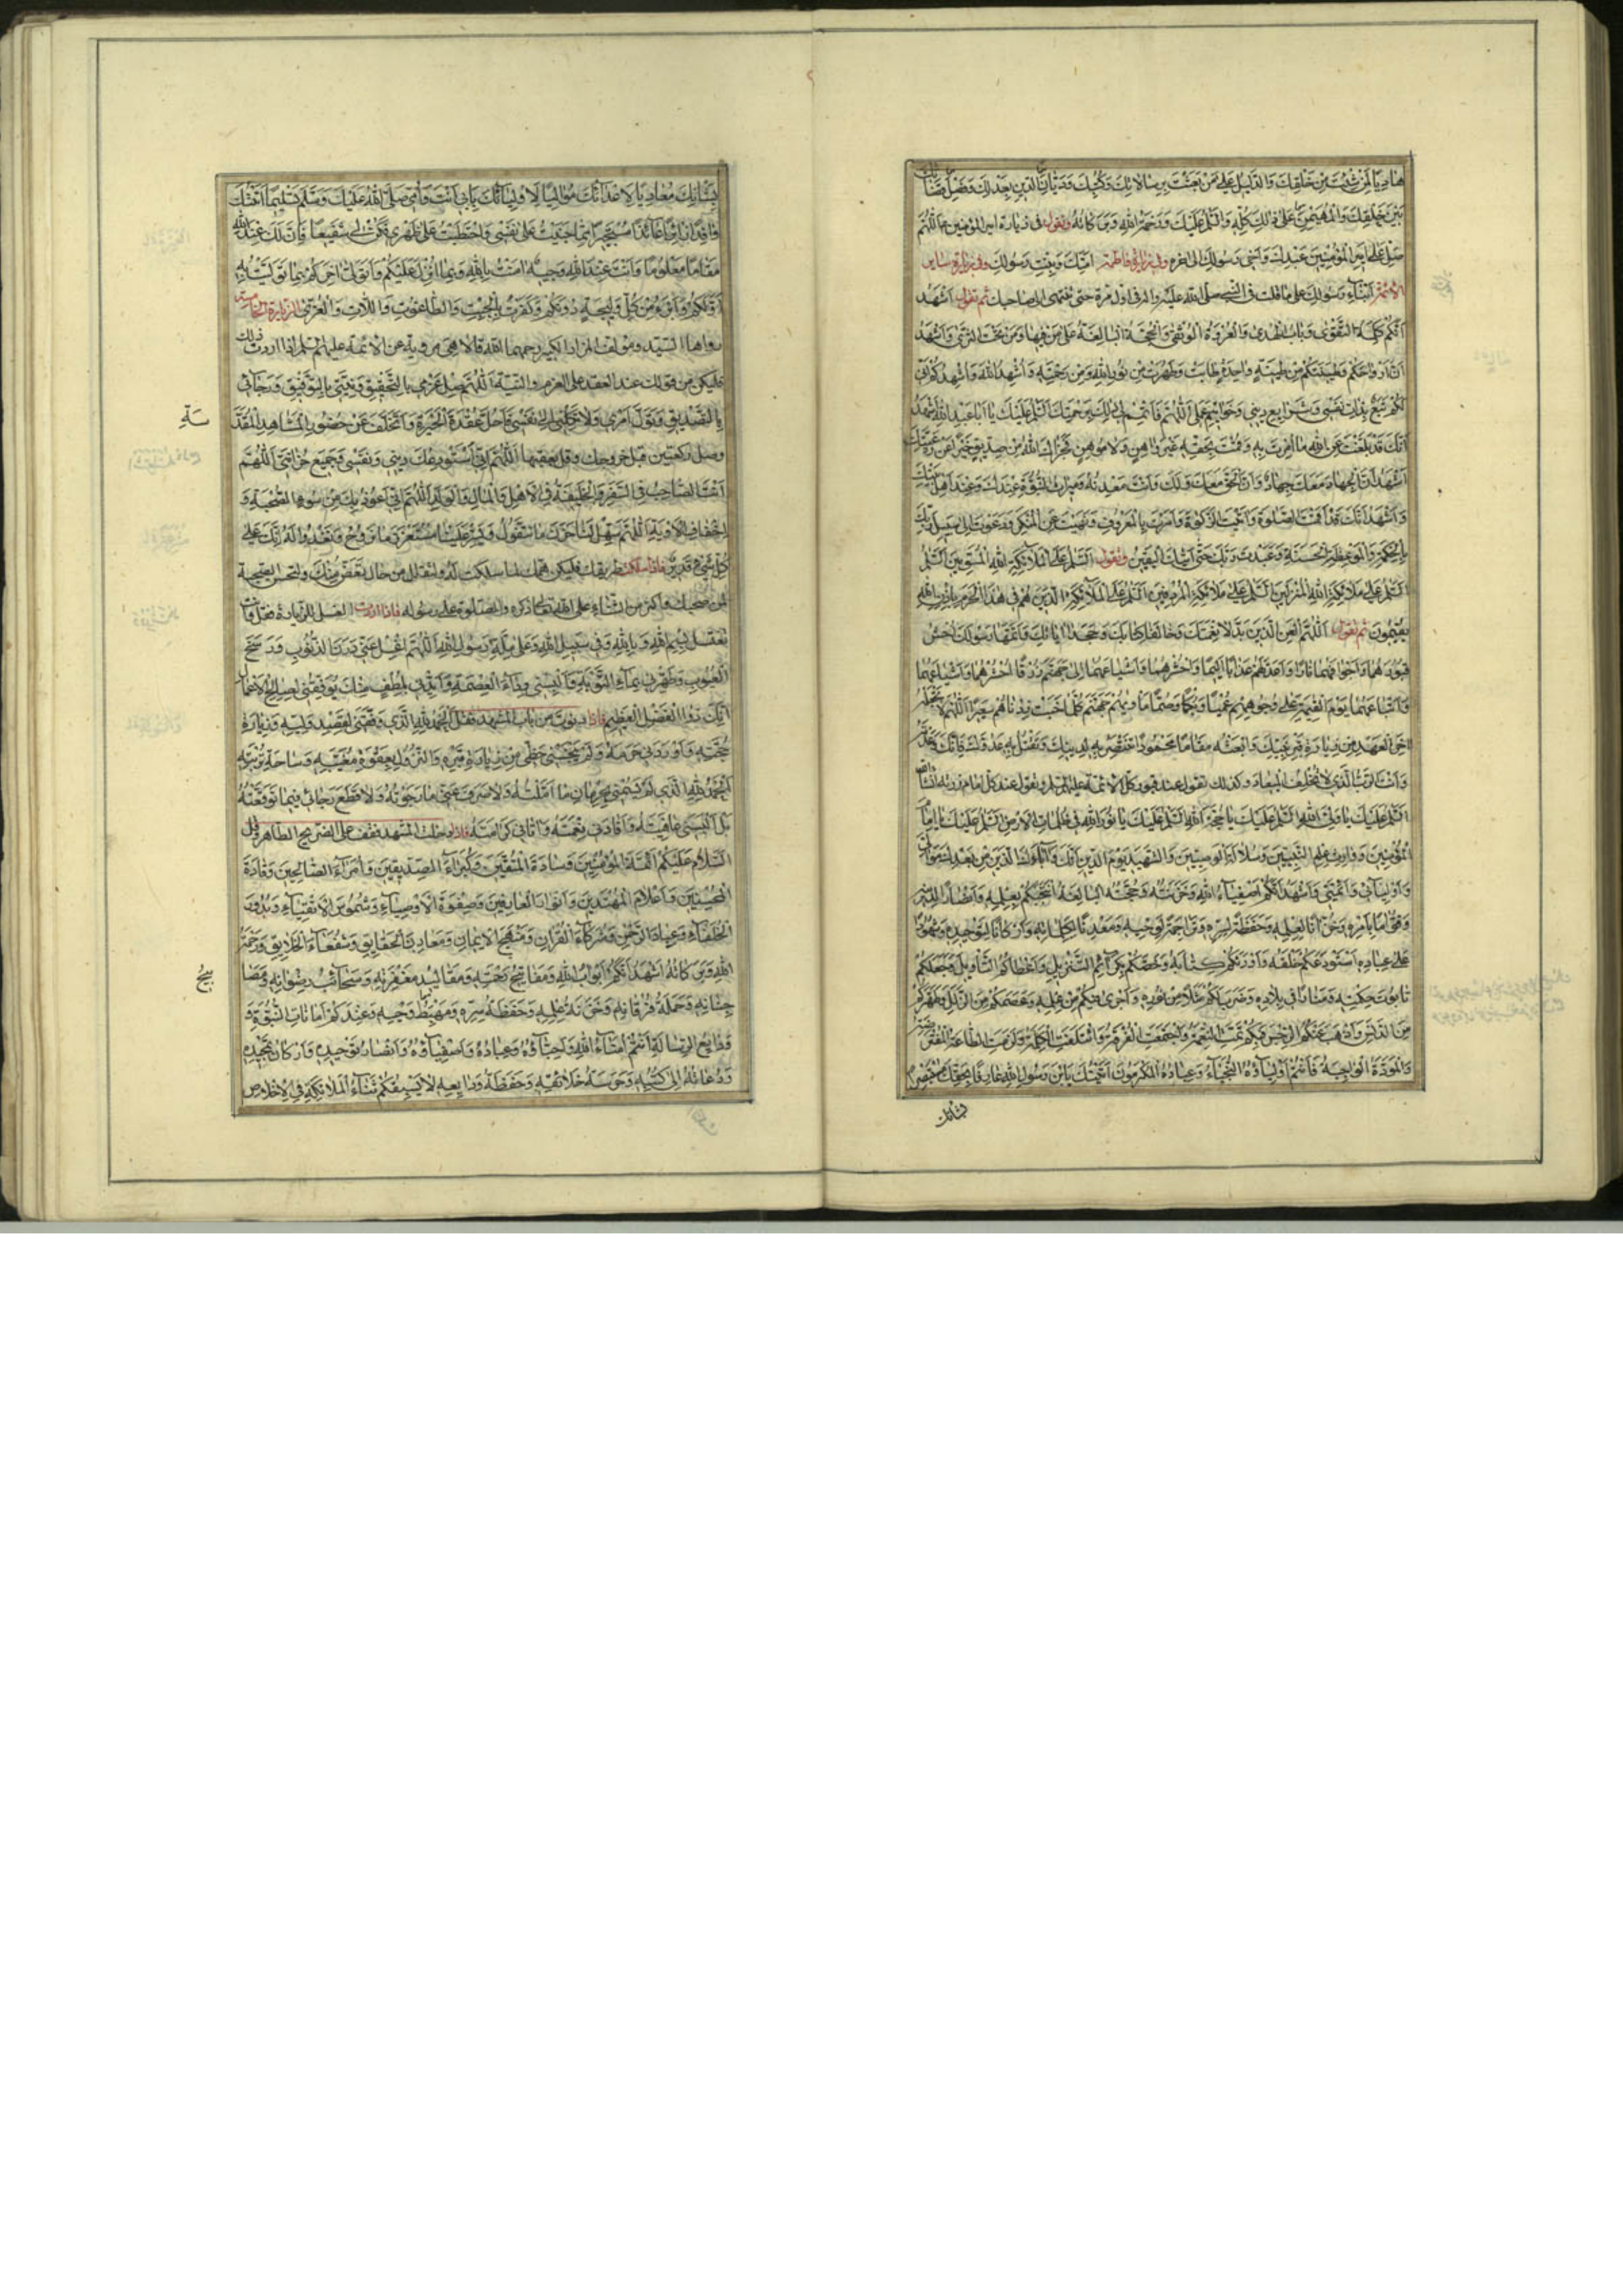 هادیا لمن شئت من خلقك والدلیل علی من بعثت برسالاتك وكتبك ودیان الدین بعدلك وفصل قضائك
بین خلقك والمهیمن علی ذلك كله والسلم علیك ورحمة الله وبركاته وتقول فی زیارة امیر المؤمنین ع اللهم
صل علی امیر المؤمنین عبدك واخی رسولك الی اخره وفی زیارة فاطمة امتك وبنت رسولك وفی زیارة سایر
الائمة ابناء رسولك علی ما قلت فی النبی صلی الله علیه واله فی اول مرة حتی تنتهی الی صاحبك ثم تقول اشهد
انكم كلمة التقوی وباب الهدی والعروة الوثقی والحجة البالغة علی من فیها ومن تحت الثری واشهد
ان ارواحكم وطینتكم من طینة واحدة طابت وطهرت من نور الله ومن رحمته واشهد الله واشهدكم انی
لكم تبع بذات نفسی وشرایع دینی وخواتیم عملی اللهم فاتمم لی ذلك برحمتك السلم علیك یا ابا عبد الله اشهد
انك قد بلغت عن الله ما امرت به وقمت بحقه غیر واهن ولا موهن فجزاك الله من صدیق خیرا عن رعیتك
اشهد ان الجهاد معك جهاد وان الحق معك ولك وانت معدنه ومیراث النبوة عندك وعند اهل بیتك
واشهد انك قد اقمت الصلوة واتیت الزكوة وامرت بالمعروف ونهیت عن المنكر ودعوت الی سبیل ربك
بالحكمة والموعظة الحسنة وعبدت ربك حتی اتیك الیقین وتقول السلم علی ملائكة الله المسومین السلم
السلم علی ملائكة الله المنزلین السلم علی ملائكة المردفین السلم علی الملائكة الذین هم فی هذا الحرم باذن الله
مقیمون ثم تقول اللهم العن الذین بدلا نعمتك وخالفا كتابك وجحدا ایاتك واتهما رسولك احش
قبورهما واجوافهما نارا واعد لهم عذابا الیما واحشرهما واشیاعهما الی جهنم زرقا احشرهما واشیاعهما
واتباعهما یوم القیمة علی وجوههم عمیا وبكما وصما ماویهم جهنم كلما خبت زدناهم سعیرا اللهم لا تجعله
اخر العهد من زیارة قبر ابن نبیك وابعثه مقاما محمودا تنتصر به لدینك وتقتل به عدوك فانك وعدته
وانت الرب الذی لا تخلف المیعاد وكذلك تقول عند قبور كل الائمة علیهم السلم وتقول عند كل امام زرته انشاء الله
السلم علیك یا ولی الله السلم علیك یا حجة الله السلم علیك یا نور الله فی ظلمات الارض السلم علیك یا امام
المؤمنین ووارث علم النبیین وسلالة الوصیین والشهید یوم الدین اشهد انك واباءك الذین كانوا من قبلك
واولیائی وائمتی واشهد انكم اصفیاء الله وخزنته وحجته البالغة انتجبكم بعلمه وانصارا لدینه
وقواما بامره وخزانا لعلمه وحفظة لسره وتراجمة لوحیه ومعدنا لكلماته واركانا لتوحیده وشهودا
علی عباده استودعكم خلقه واورثكم كتابه وخصكم بكرائم التنزیل واعطاكم التاویل وجعلكم
تابوت حكمته ومنارا فی بلاده وضرب لكم مثلا من نوره واجری فیكم من علمه وعصمكم من الزلل وطهركم
من الدنس واذهب عنكم الرجس وبكم تمت النعمة واجتمعت الفرقة وائتلفت الكلمة ولزمت الطاعة المفترضة
والمودة الواجبة فانتم اولیاؤه النجباء وعباده المكرمون اتیتك یابن رسول الله عارفا بحقك مستبصرا
بشانك
بشانك معادیا لاعدائك موالیا لاولیائك بابی انت وامی صلی الله علیك وسلم تسلیما اتیتك
وافدا زائرا عائذا مستجیرا مما جنیت علی نفسی واحتطبت علی ظهری فكن لی شفیعا فان لك عند الله
مقاما معلوما وانت عند الله وجیه امنت بالله وبما انزل علیكم واتولی اخركم بما تولیت به
اولكم وابرء من كل ولیجة دونكم وكفرت بالجبت والطاغوت واللات والعزی الزیارة الخامسة
رواها السید ومؤلف المزار الكبیر رحمهما الله قالا هی مرویة عن الائمة علیهم السلم اذا اردت ذلك
فلیكن من قولك عند العقد علی العزم والنیة اللهم صل عزمی بالتحقیق ونیتی بالتوفیق ورجائی
بالتصدیق وتول امری ولا تكلنی الی نفسی فاحل عقدة الحیرة واتخلف عن حضور المشاهد المقد
سة
وصل ركعتین قبل خروجك وقل بعقبهما اللهم انی استودعك دینی ونفسی وجمیع حزانتی اللهم
انت الصاحب فی السفر والخلیفة فی الاهل والمال والولد اللهم انی اعوذ بك من سوء الصحبة و
اخفاق الاوبة اللهم سهل لنا حزن ما نتغول ویسر علینا مستغزر ما نروح ونغدو له انك علی
كل شیء قدیر فاذا سلكت طریقك فلیكن همك لما سلكت له ولتقلل من حال تغض منك ولتحسن الصحبة
لمن صحبك واكثر من الثناء علی الله تعالی ذكره والصلوة علی رسوله فاذا اردت الغسل للزیارة فقل وانت
تغتسل بسم الله وبالله وفی سبیل الله وعلی ملة رسول الله اللهم اغسل عنی درن الذنوب ووسخ
العیوب وطهرنی بماء التوبة والبسنی رداء العصمة وایدنی بلطف منك یوفقنی لصالح الاعمال
انك ذوا الفضل العظیم فاذا دنوت من باب المشهد فقل الحمد لله الذی وفقنی لقصد ولیه وزیارة
حجته واوردنی حرمه ولم یبخسنی حظی من زیارة قبره والنزول بعقوة مغیبه وساحة تربته
الحمد لله الذی لم یسمنی بحرمان ما املته ولا صرف عنی ما رجوته ولا قطع رجائی فیما توقعته
بل البسنی عافیته وافادنی نعمته واتانی كرامته فاذا دخلت المشهد فقف علی الضریح الطاهر وقل
السلام علیكم ائمة المؤمنین وسادة المتقین وكبراء الصدیقین وامراء الصالحین وقادة
المحسنین واعلام المهتدین وانوار العارفین وصفوة الاوصیاء وشموس الاتقیاء وبدور
الخلفاء وعباد الرحمن وشركاء القران ومنهج الایمان ومعادن الحقایق وشفعاء الخلایق ورحمة
الله وبركاته اشهد انكم ابواب الله ومفاتیح رحمته ومقالید مغفرته وسحائب رضوانه ومصا
بیح
جنانه وحملة فرقانه وخزنة علمه وحفظة سره ومهبط وحیه وعندكم امانات النبوة و
ودائع الرسالة انتم امناء الله واحباؤه وعباده واصفیاؤه وانصار توحیده واركان تمجیده
ودعاته الی كتبه وحرسة خلائقه وحفظة ودایعه لا یسبقكم ثناء الملائكة فی الاخلاص